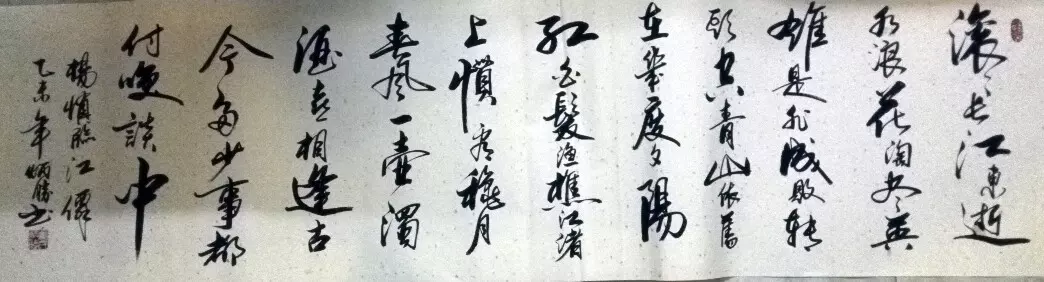 滚〻长江東逝
水浪花淘尽英
雄是非成败转
头空青山依舊
在幾度夕陽
红白髮渔樵江渚
上慣看穐月
春风一壶濁
酒喜相逢古
今多少事都
付咲談中
楊慎臨江僊
乙未年炳勝书